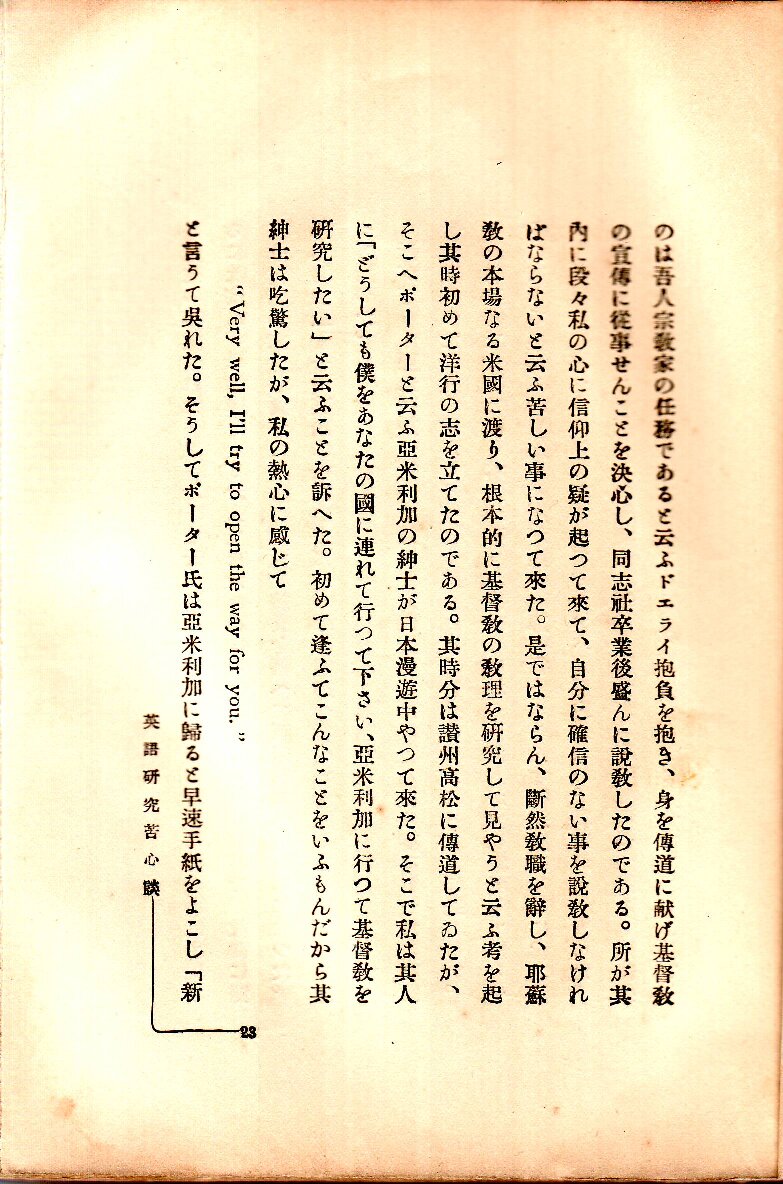 のは吾人宗敎家の任務であると云ふドエライ抱負を抱き、身を傳道に献げ基督敎
の宣傳に從事せんことを決心し、同志社卒業後盛んに說敎したのである。所が其
內に段々私の心に信仰上の疑が起つて來て、自分に確信のない事を說敎しなけれ
ばならないと云ふ苦しい事になつて來た。是ではならん、斷然敎職を辭し、耶蘇
敎の本場なる米國に渡り、根本的に基督敎の敎理を硏究して見やうと云ふ考を起
し其時初めて洋行の志を立てたのである。其時分は讃州高松に傳道してゐたが、
そこへポーターと云ふ亞米利加の紳士が日本漫遊中やつて來た。そこで私は其人
に「どうしても僕をあなたの國に連れて行つて下さい、亞米利加に行つて基督敎を
硏究したい」と云ふことを訴へた。初めて逢ふてこんなことをいふもんだから其
紳士は吃驚したが、私の熱心に感じて
“Very well, I'll try to open the way for you.”
と言うて吳れた。そうしてポーター氏は亞米利加に歸ると早速手紙をよこし「新
英語硏究苦心談
23